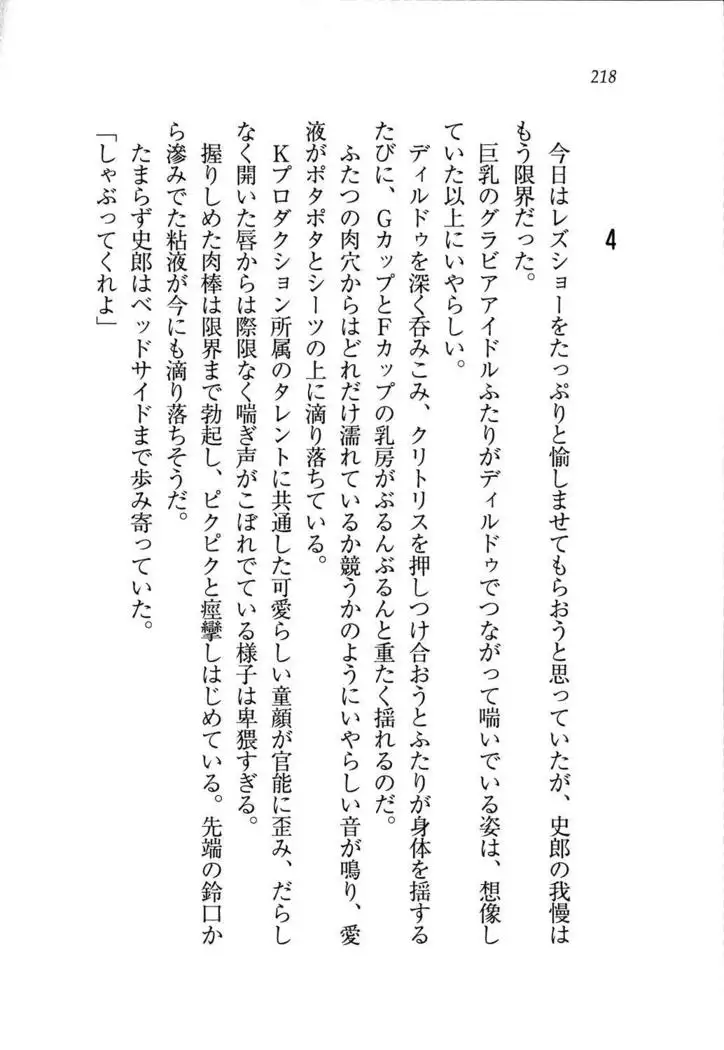 218
4
今日はレズショーをたっぷりと愉しませてもらおうと思っていたが、史郎の我慢は
もう限界だった。
巨乳のグラビアアイドルふたりがディルドゥでつながって喘いでいる姿は、想像し
ていた以上にいやらしい。
ディルドゥを深く呑みこみ、クリトリスを押しつけ合おうとふたりが身体を揺する
たびに、GカップとFカップの乳房がぶるんぶるんと重たく揺れるのだ。
ふたつの肉穴からはどれだけ濡れているか競うかのようにいやらしい音が鳴り、愛
液がポタポタとシーツの上に滴り落ちている。
Kプロダクション所属のタレントに共通した可愛らしい童顔が官能に歪み、だらし
なく開いた唇からは際限なく喘ぎ声がこぼれでている様子は卑猥すぎる。
握りしめた肉棒は限界まで勃起し、ピクピクと痙攣しはじめている。先端の鈴口か
ら滲みでた粘液が今にも滴り落ちそうだ。
たまらず史郎はベッドサイドまで歩み寄っていた。
「しゃぶってくれよ」